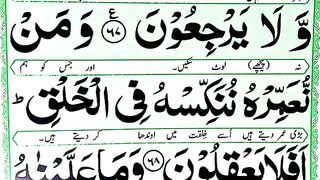 وَّلَا يَرْجِعُوْنَ ع ﴿٦٧﴾ وَمَنْ
نہ (پیچھے) لوٹ سکیں۔ اور جس کو ہم
نُّعَمِّرْهُ نُنَكِّسْهُ فِى الْخَلْقِ ط
بڑی عمر دیتے ہیں اُسے خِلقت میں اوندھا کر دیتے ہیں۔
اَفَلَا يَعْقِلُوْنَ ﴿٦٨﴾ وَمَا عَلَّمْنٰهُ